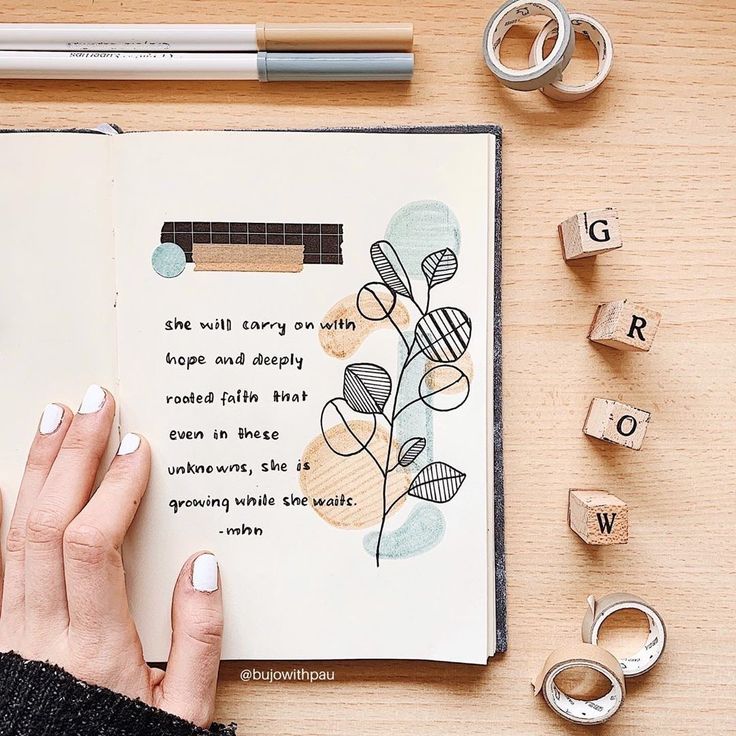 she will carry on with
hope and deeply
rooted faith that
even in these
unknowns, she is
growing while she waits.
-mhn
G
R
O
W
@bujowithpau